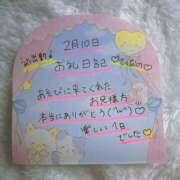 初出勤♪
2月10日
お礼日記♡
あそびに来てくれた
お兄様方♡
本当にありがとう(^ω^)♡
楽しい1日
でした♡